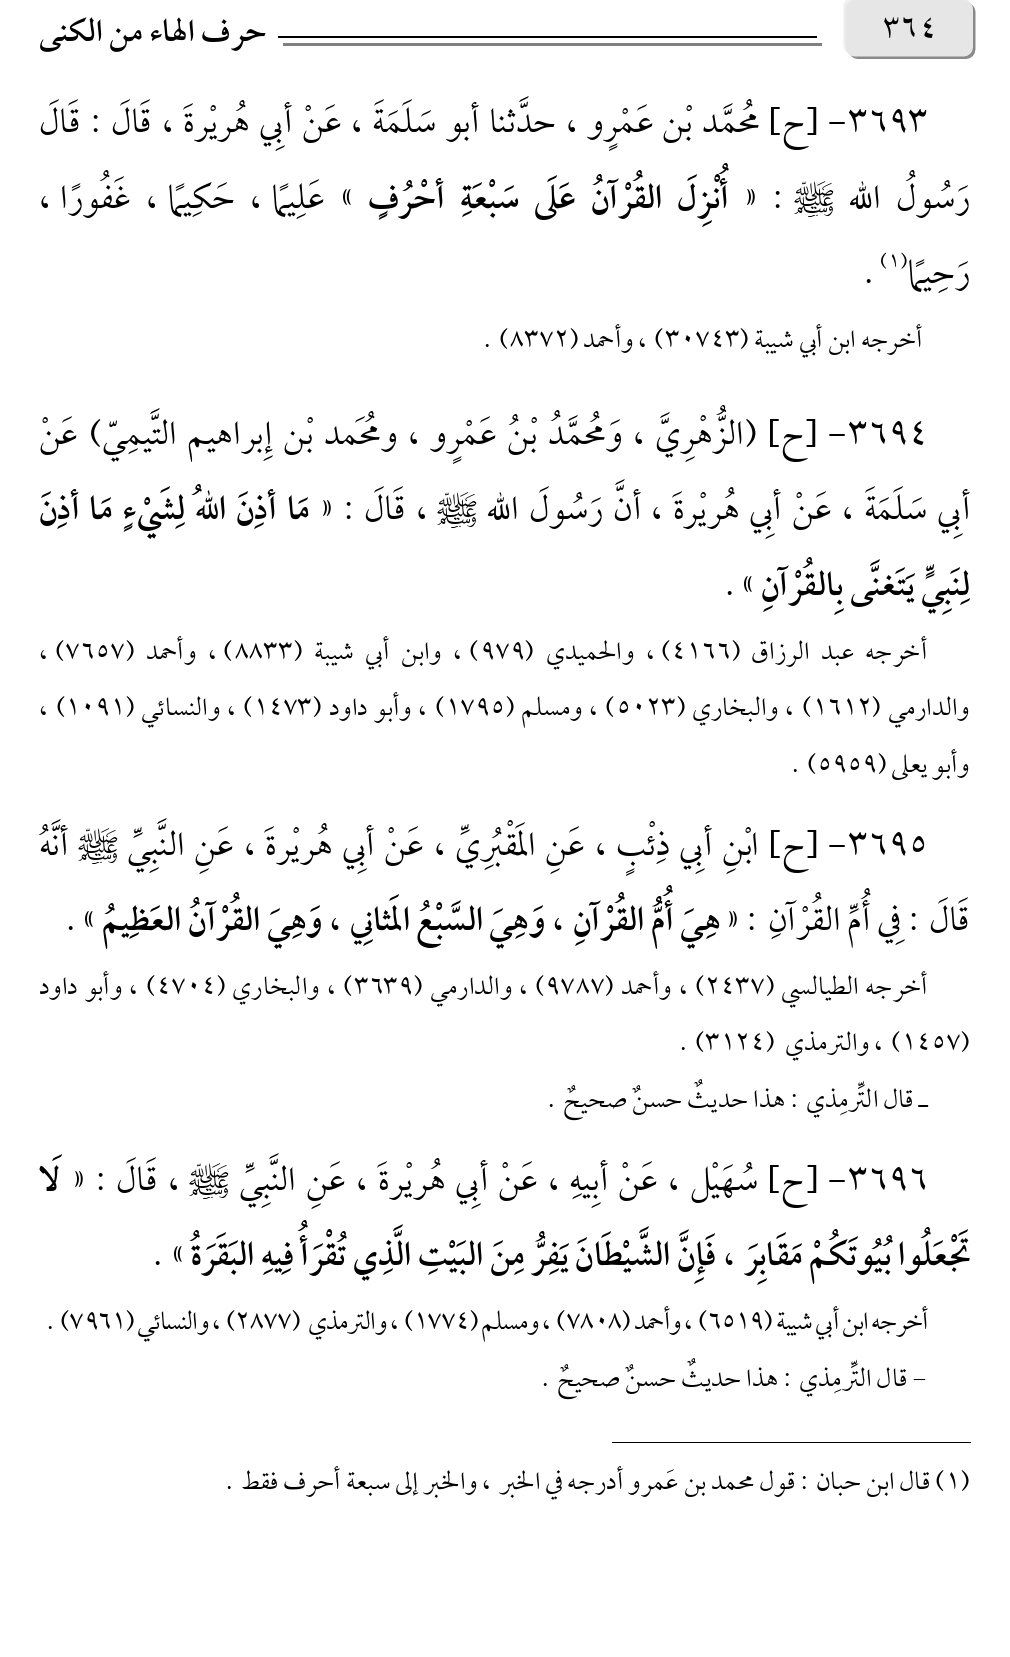 ٣٦٤
حرف الهاء من الكنى
٣٦٩٣- [ح] مُحُمَّد بْن عَمْرٍو ، حدَّثنا أبو سَلَمَةَ ، عَنْ أبِي هُريْرةَ ، قَالَ : قَالَ
رَسُولُ الله ﷺ : « أُنْزِلَ القُرْآنُ عَلَى سَبْعَةِ أحْرُفٍ » عَلِيمًا ، حَكِيمًا ، غَفُورًا ،
رَحِيمًا(١) .
أخرجه ابن أبي شيبة (٣٠٧٤٣) ، وأحمد (٨٣٧٢) .
٣٦٩٤- [ح] (الزُّهْرِيَّ ، وَمُحُمَّدُ بْنُ عَمْرٍو ، ومحُمَد بْن إِبراهيم التَّيمِيّ) عَنْ
أبِي سَلَمَةَ ، عَنْ أبِي هُريْرةَ ، أنَّ رَسُولَ الله ﷺ ، قَالَ : « مَا أذِنَ اللهُ لِشَيْءٍ مَا أذِنَ
لِنَبِيٍّ يَتَغنَّى بِالقُرْآنِ » .
أخرجه عبد الرزاق (٤١٦٦) ، والحميدي (٩٧٩) ، وابن أبي شيبة (٨٨٣٣) ، وأحمد (٧٦٥٧) ،
والدارمي (١٦١٢) ، والبخاري (٥٠٢٣) ، ومسلم (١٧٩٥) ، وأبو داود (١٤٧٣) ، والنسائي (١٠٩١) ،
وأبو يعلى (٥٩٥٩) .
٣٦٩٥- [ح] ابْنِ أبِي ذِئْبٍ ، عَنِ المَقْبُرِيِّ ، عَنْ أبِي هُريْرةَ ، عَنِ النَّبِيِّ ﷺ أنَّهُ
قَالَ : فِي أُمِّ القُرْآنِ : « هِيَ أُمُّ القُرْآنِ ، وَهِيَ السَّبْعُ المَثانِي ، وَهِيَ القُرْآنُ العَظِيمُ » .
أخرجه الطيالسي (٢٤٣٧) ، وأحمد (٩٧٨٧) ، والدارمي (٣٦٣٩) ، والبخاري (٤٧٠٤) ، وأبو داود
(١٤٥٧) ، والترمذي (٣١٢٤) .
ـ قال التِّرمِذي : هذا حديثٌ حسنٌ صحيحٌ .
٣٦٩٦- [ح] سُهَيْل ، عَنْ أبِيهِ ، عَنْ أبِي هُريْرةَ ، عَنِ النَّبِيِّ ﷺ ، قَالَ : « لَا
تَجْعَلُوا بُيُوتَكُمْ مَقَابِرَ ، فَإِنَّ الشَّيْطَانَ يَفِرُّ مِنَ البَيْتِ الَّذِي تُقْرَأُ فِيهِ البَقَرَةُ » .
أخرجه ابن أبي شيبة (٦٥١٩) ، وأحمد (٧٨٠٨) ، ومسلم (١٧٧٤) ، والترمذي (٢٨٧٧) ، والنسائي (٧٩٦١) .
– قال التِّرمِذي : هذا حديثٌ حسنٌ صحيحٌ .
(١) قال ابن حبان : قول محمد بن عَمرو أدرجه في الخبر ، والخبر إلى سبعة أحرف فقط .